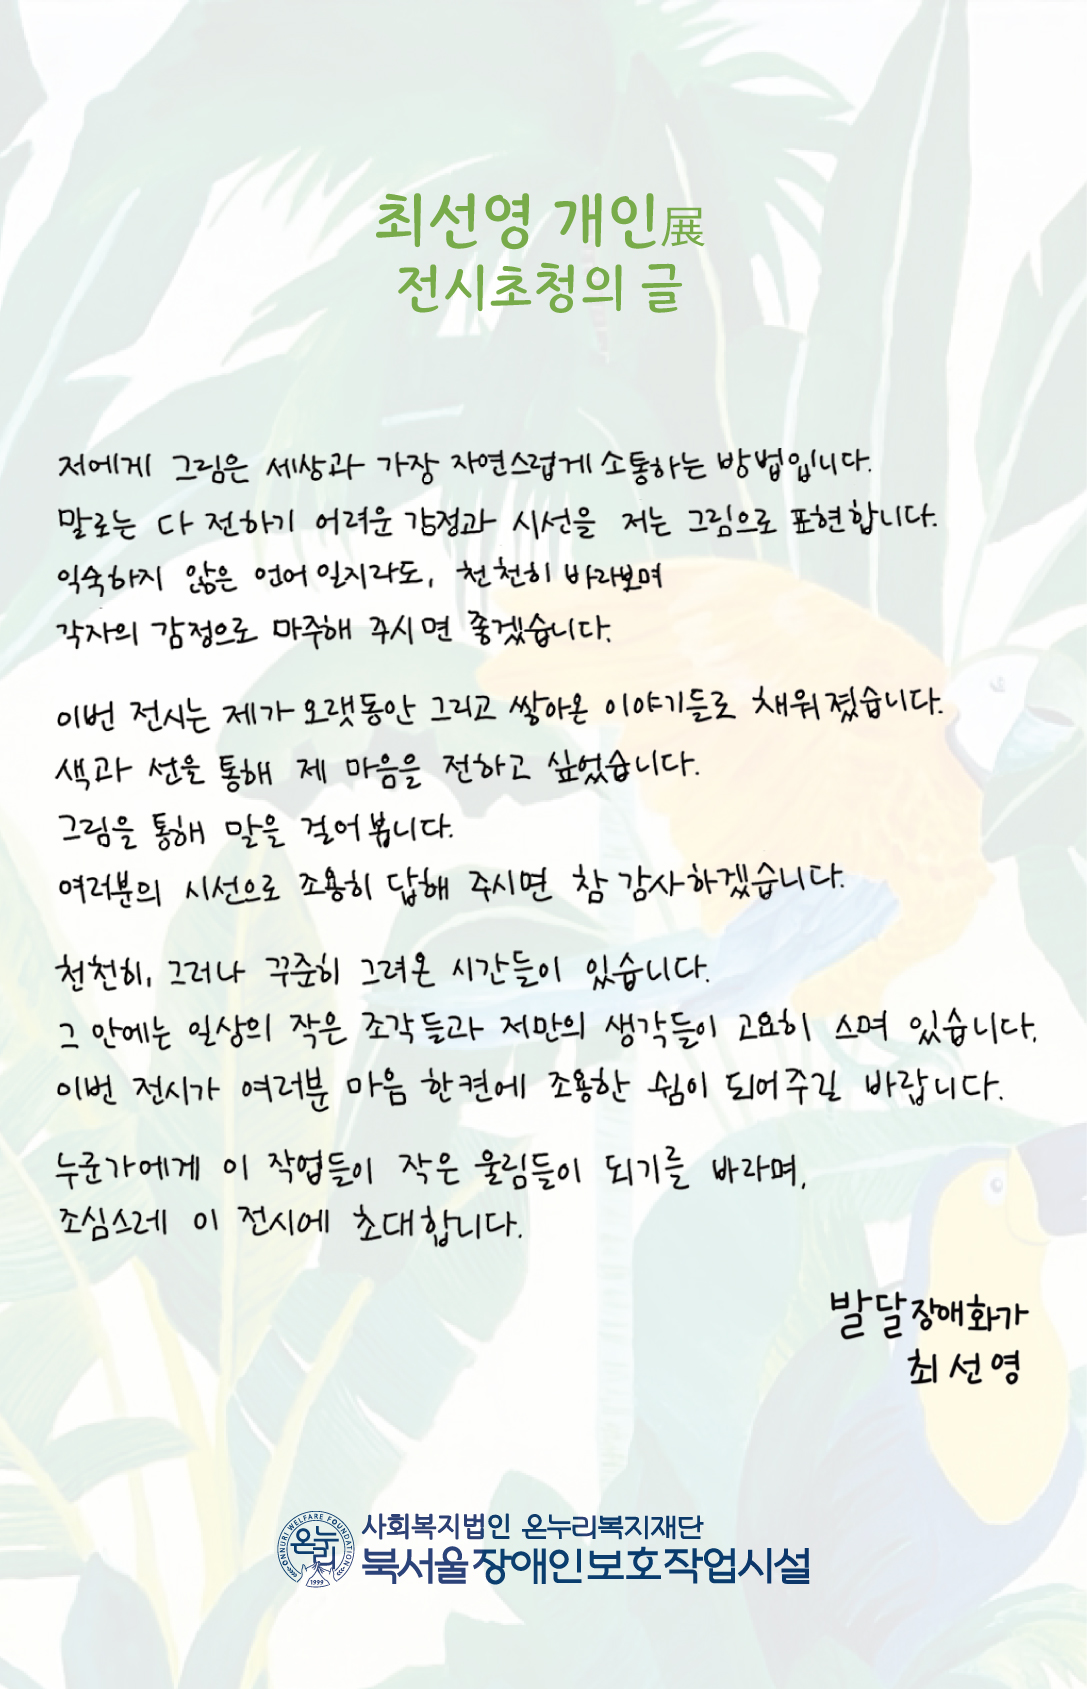 최선영 개인展
전시초청의 글
저에게 그림은 세상과 가장 자연스럽게 소통하는 방법입니다.
말로는 다 전하기 어려운 감정과 시선을 저는 그림으로 표현합니다.
익숙하지 않은 언어일지라도, 천천히 바라보며
각자의 감정으로 마주해 주시면 좋겠습니다.
이번 전시는 제가 오랫동안 그리고 쌓아온 이야기들로 채워졌습니다.
색과 선을 통해 제 마음을 전하고 싶었습니다.
그림을 통해 말을 걸어봅니다.
여러분의 시선으로 조용히 답해 주시면 참 감사하겠습니다.
천천히, 그러나 꾸준히 그려온 시간들이 있습니다.
그 안에는 일상의 작은 조각들과 저만의 생각들이 고요히 스며 있습니다.
이번 전시가 여러분 마음 한켠에 조용한 쉼이 되어주길 바랍니다.
누군가에게 이 작업들이 작은 울림들이 되기를 바라며,
조심스레 이 전시에 초대합니다.
발달장애화가
최선영
ONNURI WELFARE FOUNDATION
온누리
1999
사회복지법인 온누리복지재단
북서울장애인보호작업시설